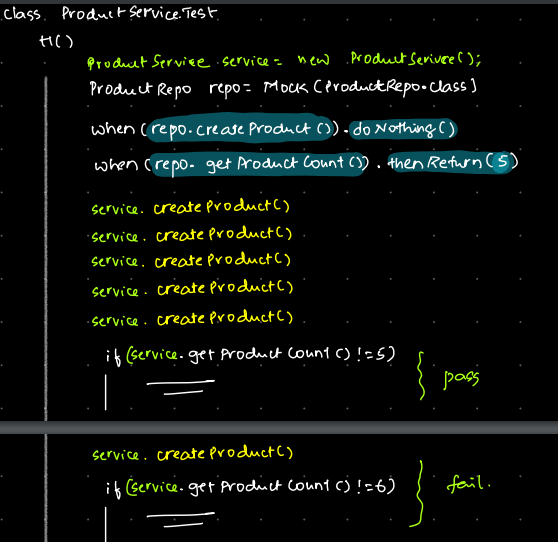 class ProductService.Test
t1()
ProductService service = new ProductSerivce();
ProductRepo repo = Mock(ProductRepo.class)
when (repo.createProduct()).doNothing()
when (repo. getProductCount()). thenReturn(5)
service. createProduct()
service. createProduct()
service. createProduct()
service. createProduct()
service. createProduct()
if (service. getProductCount() != 5)
pass
service. createProduct()
if (service. getProductCount() != 6)
fail.